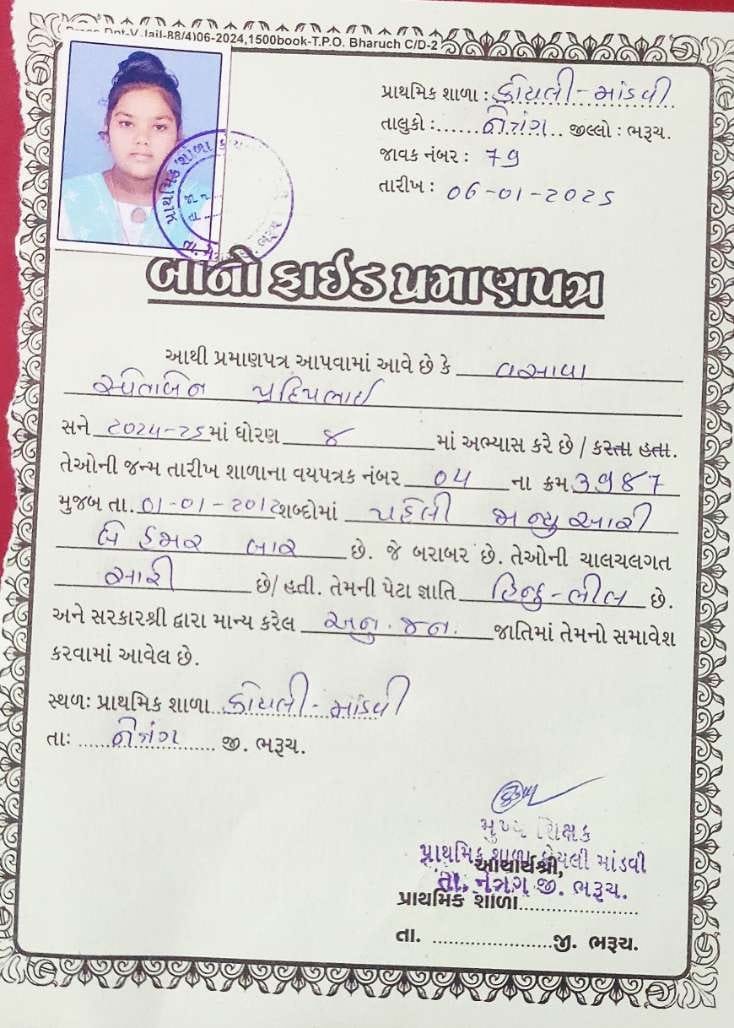 Press Dpt-V.Jail-88/4)06-2024,1500book-T.P.O. Bharuch C/D-2
પ્રાથમિક શાળા : કોયલી-માંડવી
તાલુકો :......નેત્રંગ.. જીલ્લો : ભરૂચ.
જાવક નંબર : ૭૧
તારીખ : ૦૬-૦૧-૨૦૨૫
બોનોફાઈડ પ્રમાણપત્ર
આથી પ્રમાણપત્ર આપવામાં આવે છે કે વસાવા
પ્રદિપભાઈ
સને ૨૦૨૪-૨૫ માં ધોરણ ૪ માં અભ્યાસ કરે છે / કરતા હતા.
તેઓની જન્મ તારીખ શાળાના વયપત્રક નંબર ૦૫ ના ક્રમ ૩૧૪૭
મુજબ તા. ૦૧-૦૧-૨૦૧૨ શબ્દોમાં પહેલી જાન્યુઆરી
બે હજાર બાર છે. જે બરાબર છે. તેઓની ચાલચલગત
સારી છે/ હતી. તેમની પેટા જ્ઞાતિ હિન્દુ-ભીલ છે.
અને સરકારશ્રી દ્વારા માન્ય કરેલ અનુ. જન. જાતિમાં તેમનો સમાવેશ
કરવામાં આવેલ છે.
સ્થળઃ પ્રાથમિક શાળા કોયલી-માંડવી
તાઃ ......નેત્રંગ...... જી. ભરૂચ.
મુખ્ય શિક્ષક
પ્રાથમિક શાળા કોયલી માંડવી
આચાર્યશ્રી,
તા. નેત્રંગ જી. ભરૂચ.
પ્રાથમિક શાળા....................
તા. ....................જી. ભરૂચ.